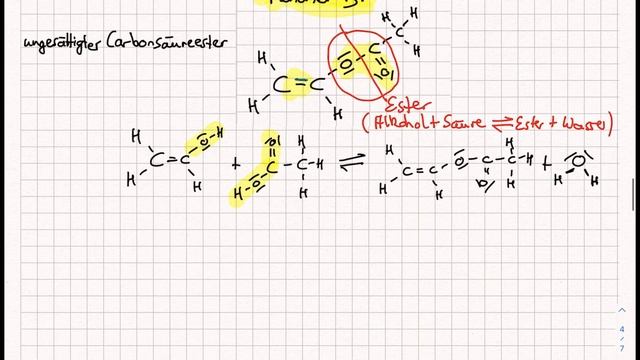 ungesättigter Carbonsäureester
Ester
(Alkohol + Säure ⇌ Ester + Wasser)
H H H H
C=C O C C H
H H
H H
C=C O H
H H
+
H O C O C H H H
⇌
H H
C=C O C C H H H
H H
+ O H H
4
/
7